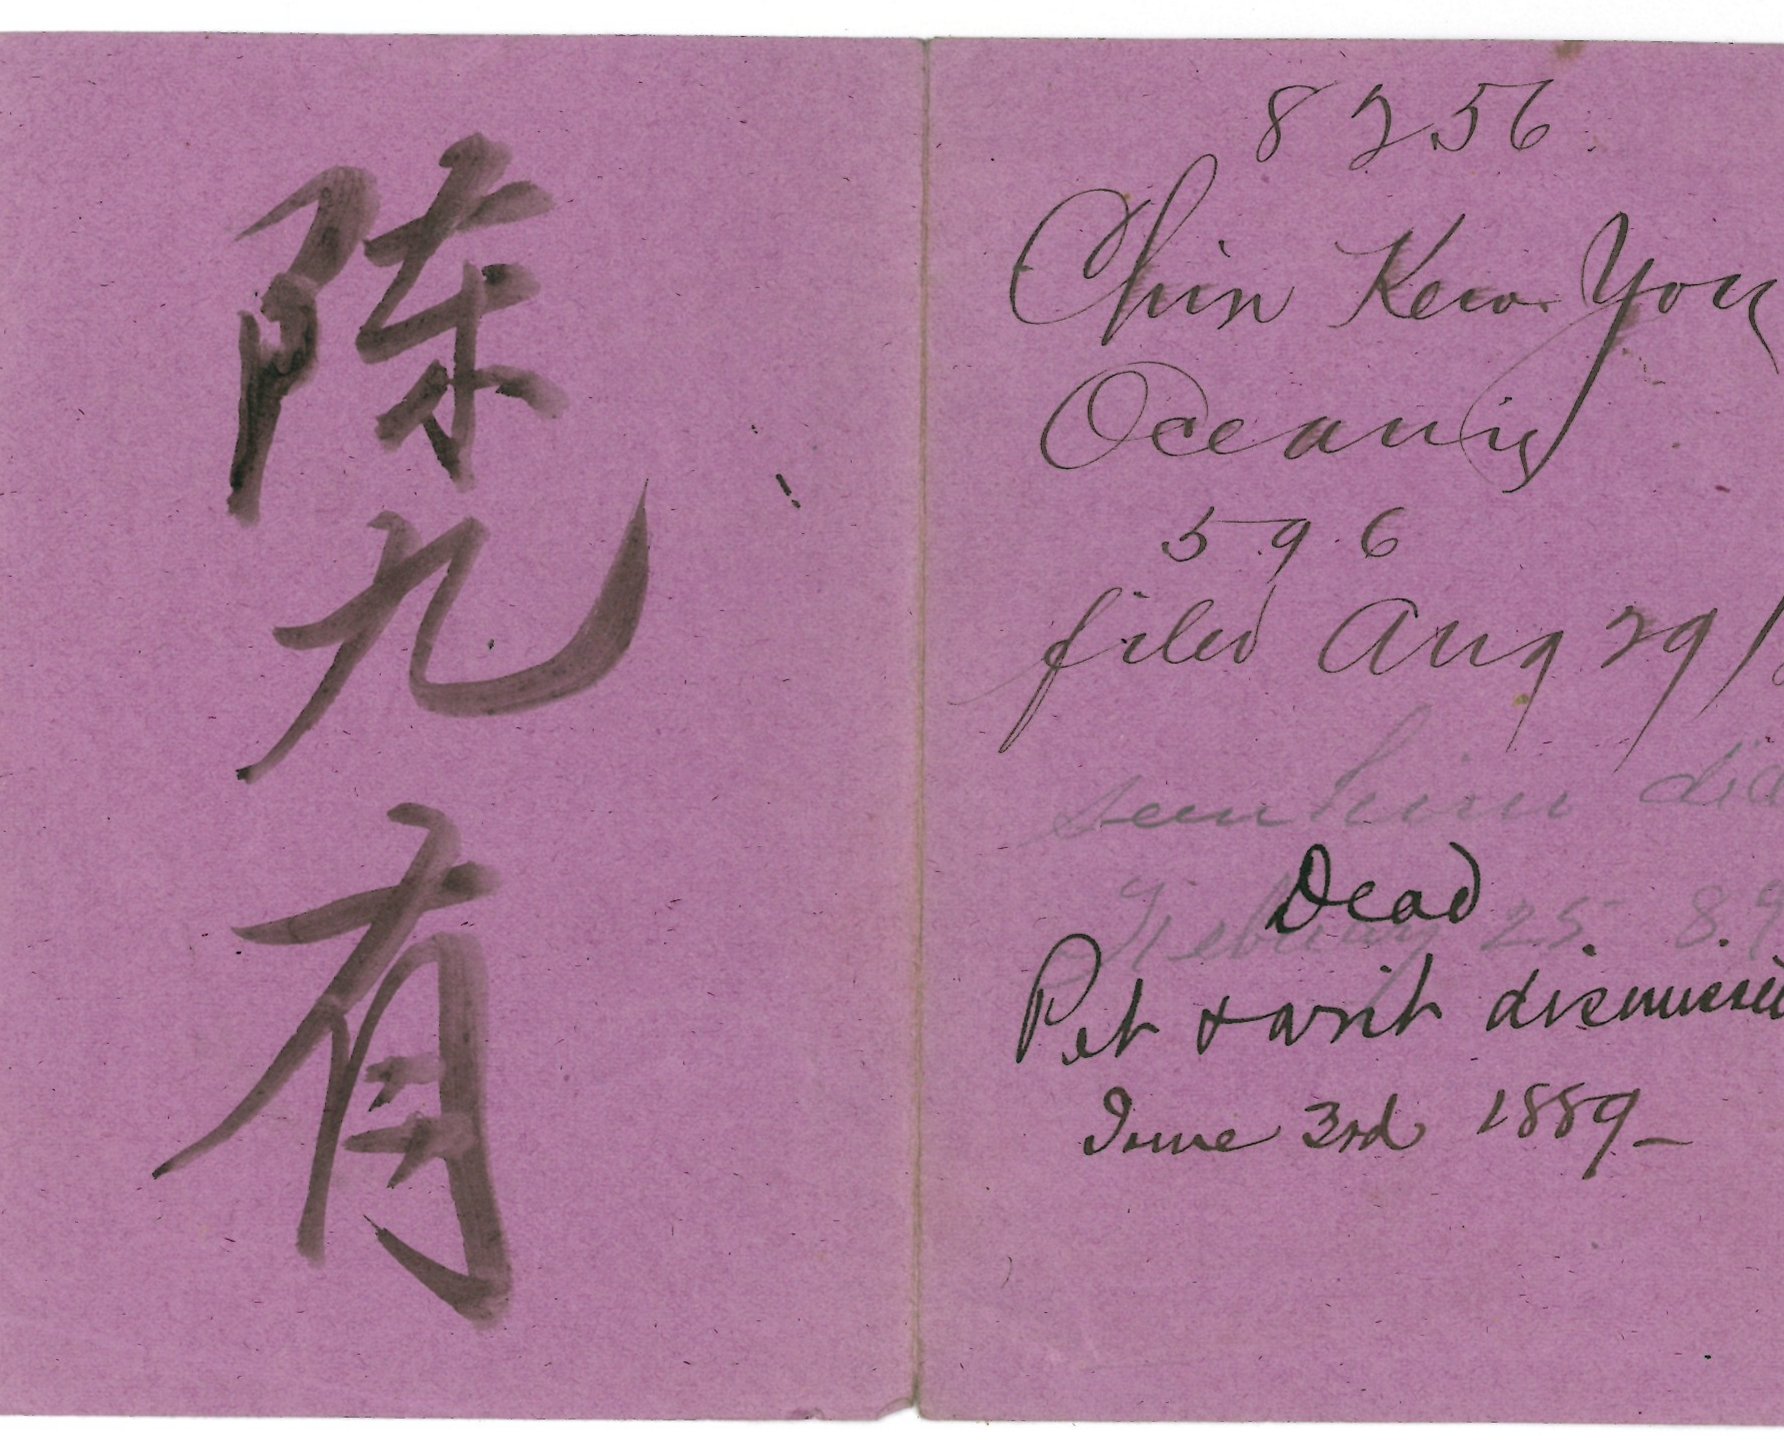 陳九有
8256
Chin Kew You
Oceanic
596
filed Aug 29/
seen him
Dead
25. 8.9
Pet & writ dismissed
June 3rd 1889